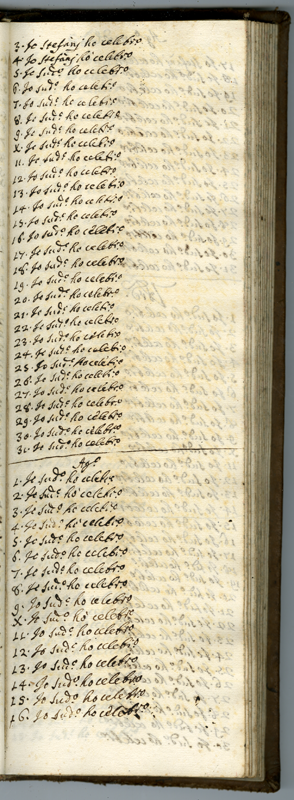 3. Io Stefanj ho celebro
4. Io Stefanj ho celebro
5. Io sud.o ho celebro
6. Io sud.o ho celebro
7. Io sud.o ho celebro
8. Io sud.o ho celebro
9. Io sud.o ho celebro
X. Io sud.o ho celebro
11. Io sud.o ho celebro
12. Io sud.o ho celebro
13. Io sud.o ho celebro
14. Io sud.o ho celebro
15. Io sud.o ho celebro
16. Io sud.o ho celebro
17. Io sud.o ho celebro
18. Io sud.o ho celebro
19. Io sud.o ho celebro
20. Io sud.o ho celebro
21. Io sud.o ho celebro
22. Io sud.o ho celebro
23. Io sud.o ho celebro
24. Io sud.o ho celebro
25. Io sud.o ho celebro
26. Io sud.o ho celebro
27. Io sud.o ho celebro
28. Io sud.o ho celebro
29. Io sud.o ho celebro
30. Io sud.o ho celebro
31. Io sud.o ho celebro
Ag.o
1. Io sud.o ho celebro
2. Io sud.o ho celebro
3. Io sud.o ho celebro
4. Io sud.o ho celebro
5. Io sud.o ho celebro
6. Io sud.o ho celebro
7. Io sud.o ho celebro
8. Io sud.o ho celebro
9. Io sud.o ho celebro
X. Io sud.o ho celebro
11. Io sud.o ho celebro
12. Io sud.o ho celebro
13. Io sud.o ho celebro
14. Io sud.o ho celebro
15. Io sud.o ho celebro
16. Io sud.o ho celebro